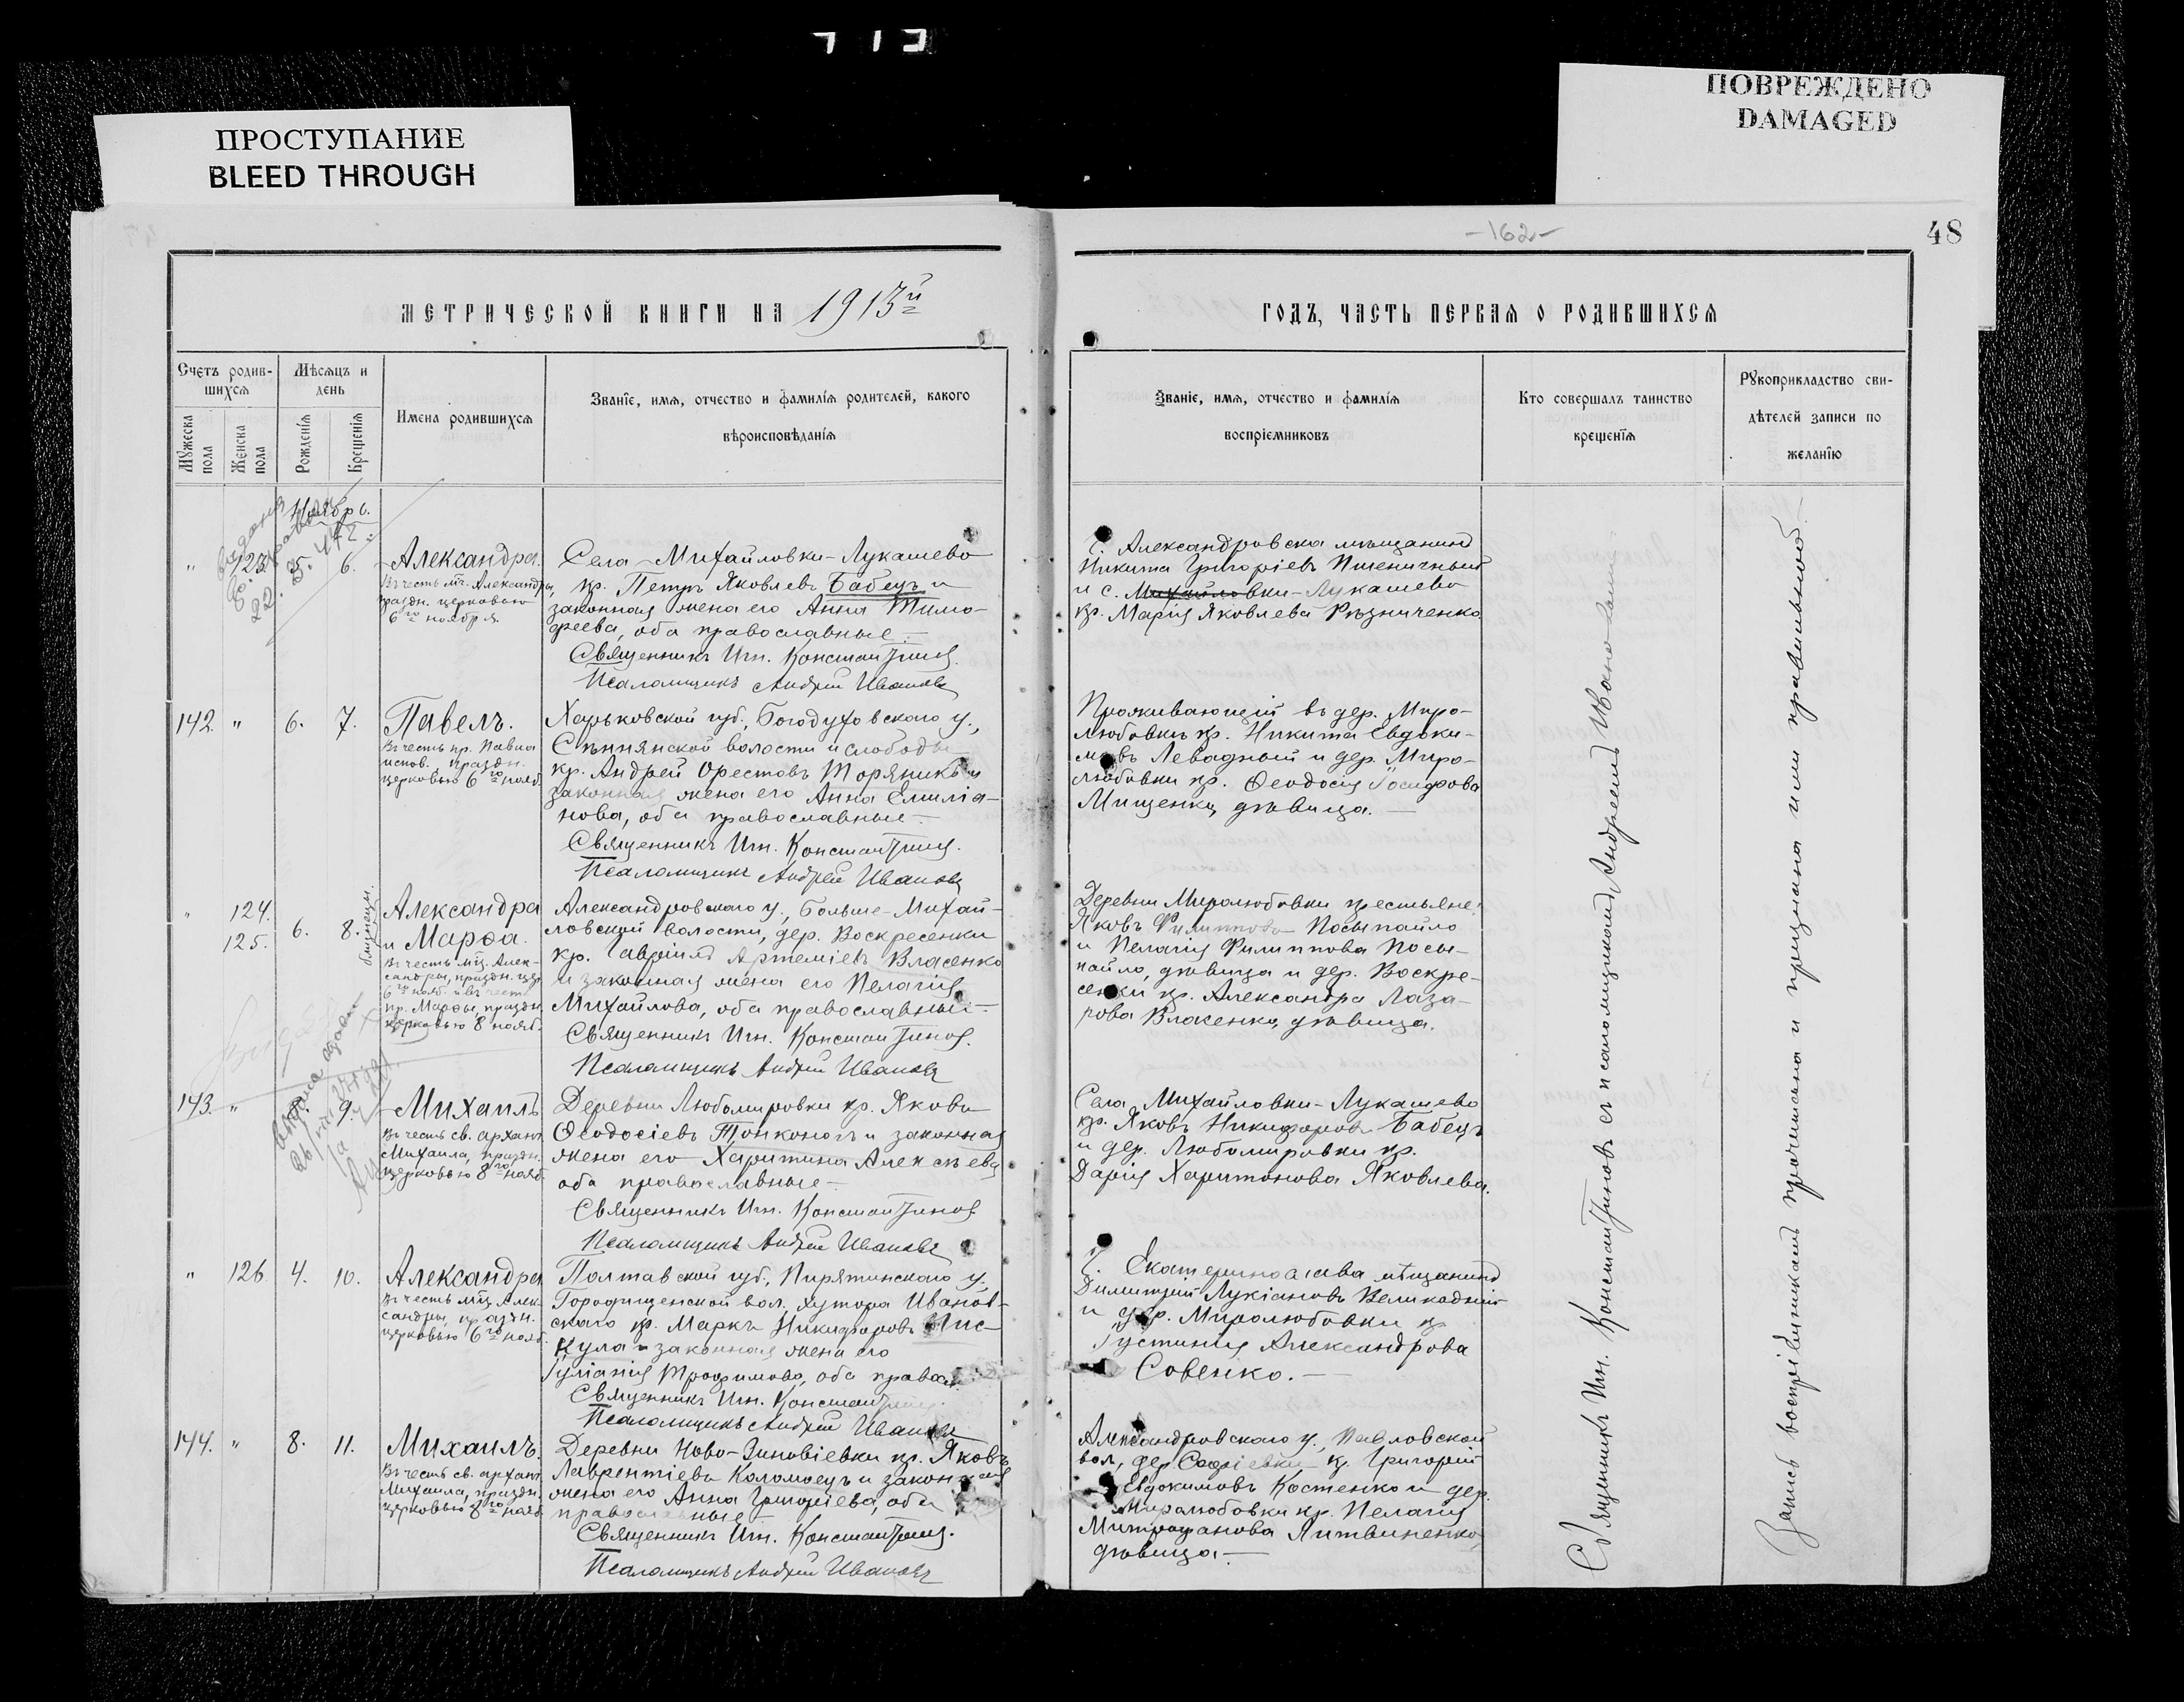 ПРОСТУПАНИЕ
BLEED THROUGH
ПОВРЕЖДЕНО
DAMAGED
-162-
48
МЕТРИЧЕСКОЙ КНИГИ НА 1913й
ГОДЪ, ЧАСТЬ ПЕРВАЯ О РОДИВШИХСЯ
Счетъ родив-
шихся
Мѣсяцъ и
день
Мужеска пола
Женска пола
Рожденія
Крещенія
Имена родившихся
Званіе, имя, отчество и фамилія родителей, какого
вѣроисповѣданія
Званіе, имя, отчество и фамилія
воспріемниковъ
Кто совершалъ таинство
крещенія
Рукоприкладство сви-
дѣтелей записи по
желанію
Ноябрь.
" 123. 5. 6.
Александра.
Въ честь мч. Александры,
праздн. церковью
6го ноября.
Села Михайловки-Лукашево
кр. Петръ Яковлевъ Бабецъ и
законная жена его Анна Тимо-
феева, оба православные.
Священникъ Іоан. Константиновъ.
Псаломщикъ Андрей Ивановъ
Г. Александровска мѣщанинъ
Никита Григоріевъ Пшеничный
и с. Михайловки-Лукашево
кр. Марія Яковлева Рѣзниченко
142. " 6. 7.
Павелъ.
Въ честь пр. Павла
испов., праздн.
церковью 6го нояб.
Харьковской губ., Богодуховскаго у.,
Сѣннянской волости и слободы
кр. Андрей Орестовъ Торяникъ и
законная жена его Анна Емиліа-
нова, оба православные.
Священникъ Іоан. Константиновъ.
Псаломщикъ Андрей Ивановъ
Проживающій въ дер. Миро-
любовки кр. Никита Евдоки-
мовъ Левадный и дер. Миро-
любовки кр. Ѳеодосія Іосифова
Мищенко, дѣвица.
" 124. 125. 6. 8.
близнецы.
Александра
и Марѳа.
Въ честь мц. Алек-
сандры, праздн. цер.
6го нояб. и въ честь
пр. Марѳы, праздн.
церковью 8 нояб.
Александровскаго у., Больше-Михай-
ловской волости, дер. Воскресенки
кр. Гавріилъ Артеміевъ Власенко
и законная жена его Пелагія
Михайлова, оба православные.
Священникъ Іоан. Константиновъ.
Псаломщикъ Андрей Ивановъ
Деревни Миролюбовки крестьяне:
Яковъ Филипповъ Посыпайло
и Пелагія Филиппова Посы-
пайло, дѣвица и дер. Воскре-
сенки кр. Александра Лаза-
рова Власенко, дѣвица.
143. " 8. 9.
Михаилъ
Въ честь св. архан.
Михаила, праздн.
церковью 8го нояб.
Деревни Любомировки кр. Яковъ
Ѳеодосіевъ Тонконогъ и законная
жена его Харитина Алексѣева
оба православные.
Священникъ Іоан. Константиновъ
Псаломщикъ Андрей Ивановъ
Села Михайловки-Лукашево
кр. Яковъ Никифоровъ Бабецъ
и дер. Любомировки кр.
Дарія Харитонова Яковлева.
" 126. 4. 10.
Александра
Въ честь мц. Алек-
сандры, праздн.
церковью 6го нояб.
Полтавской губ., Пирятинскаго у.,
Городищенской вол. хутора Иванов-
скаго кр. Маркъ Никифоровъ Пис-
кула и законная жена его
Іуліанія Трофимова, оба правосл.
Священникъ Іоан. Константиновъ.
Псаломщикъ Андрей Ивановъ
Г. Екатеринослава мѣщанинъ
Димитрій Лукіановъ Великодній
и дер. Миролюбовки кр
Іустинія Александрова
Совенко.
144. " 8. 11.
Михаилъ.
Въ честь св. архан.
Михаила, праздн.
церковью 8го нояб.
Деревни Ново-Зиновіевки кр. Яковъ
Лаврентіевъ Коломоецъ и законная
жена его Анна Григоріева, оба
православные
Священникъ Іоан. Константиновъ.
Псаломщикъ Андрей Ивановъ
Александровскаго у., Павловской
вол., дер. Софіевки кр. Григорій
Евдокимовъ Костенко и дер.
Миролюбовки кр. Пелагія
Митрофанова Литвиненко,
дѣвица.
Священникъ Іоан. Константиновъ съ псаломщикомъ Андреемъ Ивановымъ
Запись воспріемниками прочитана и признана ими правильной.